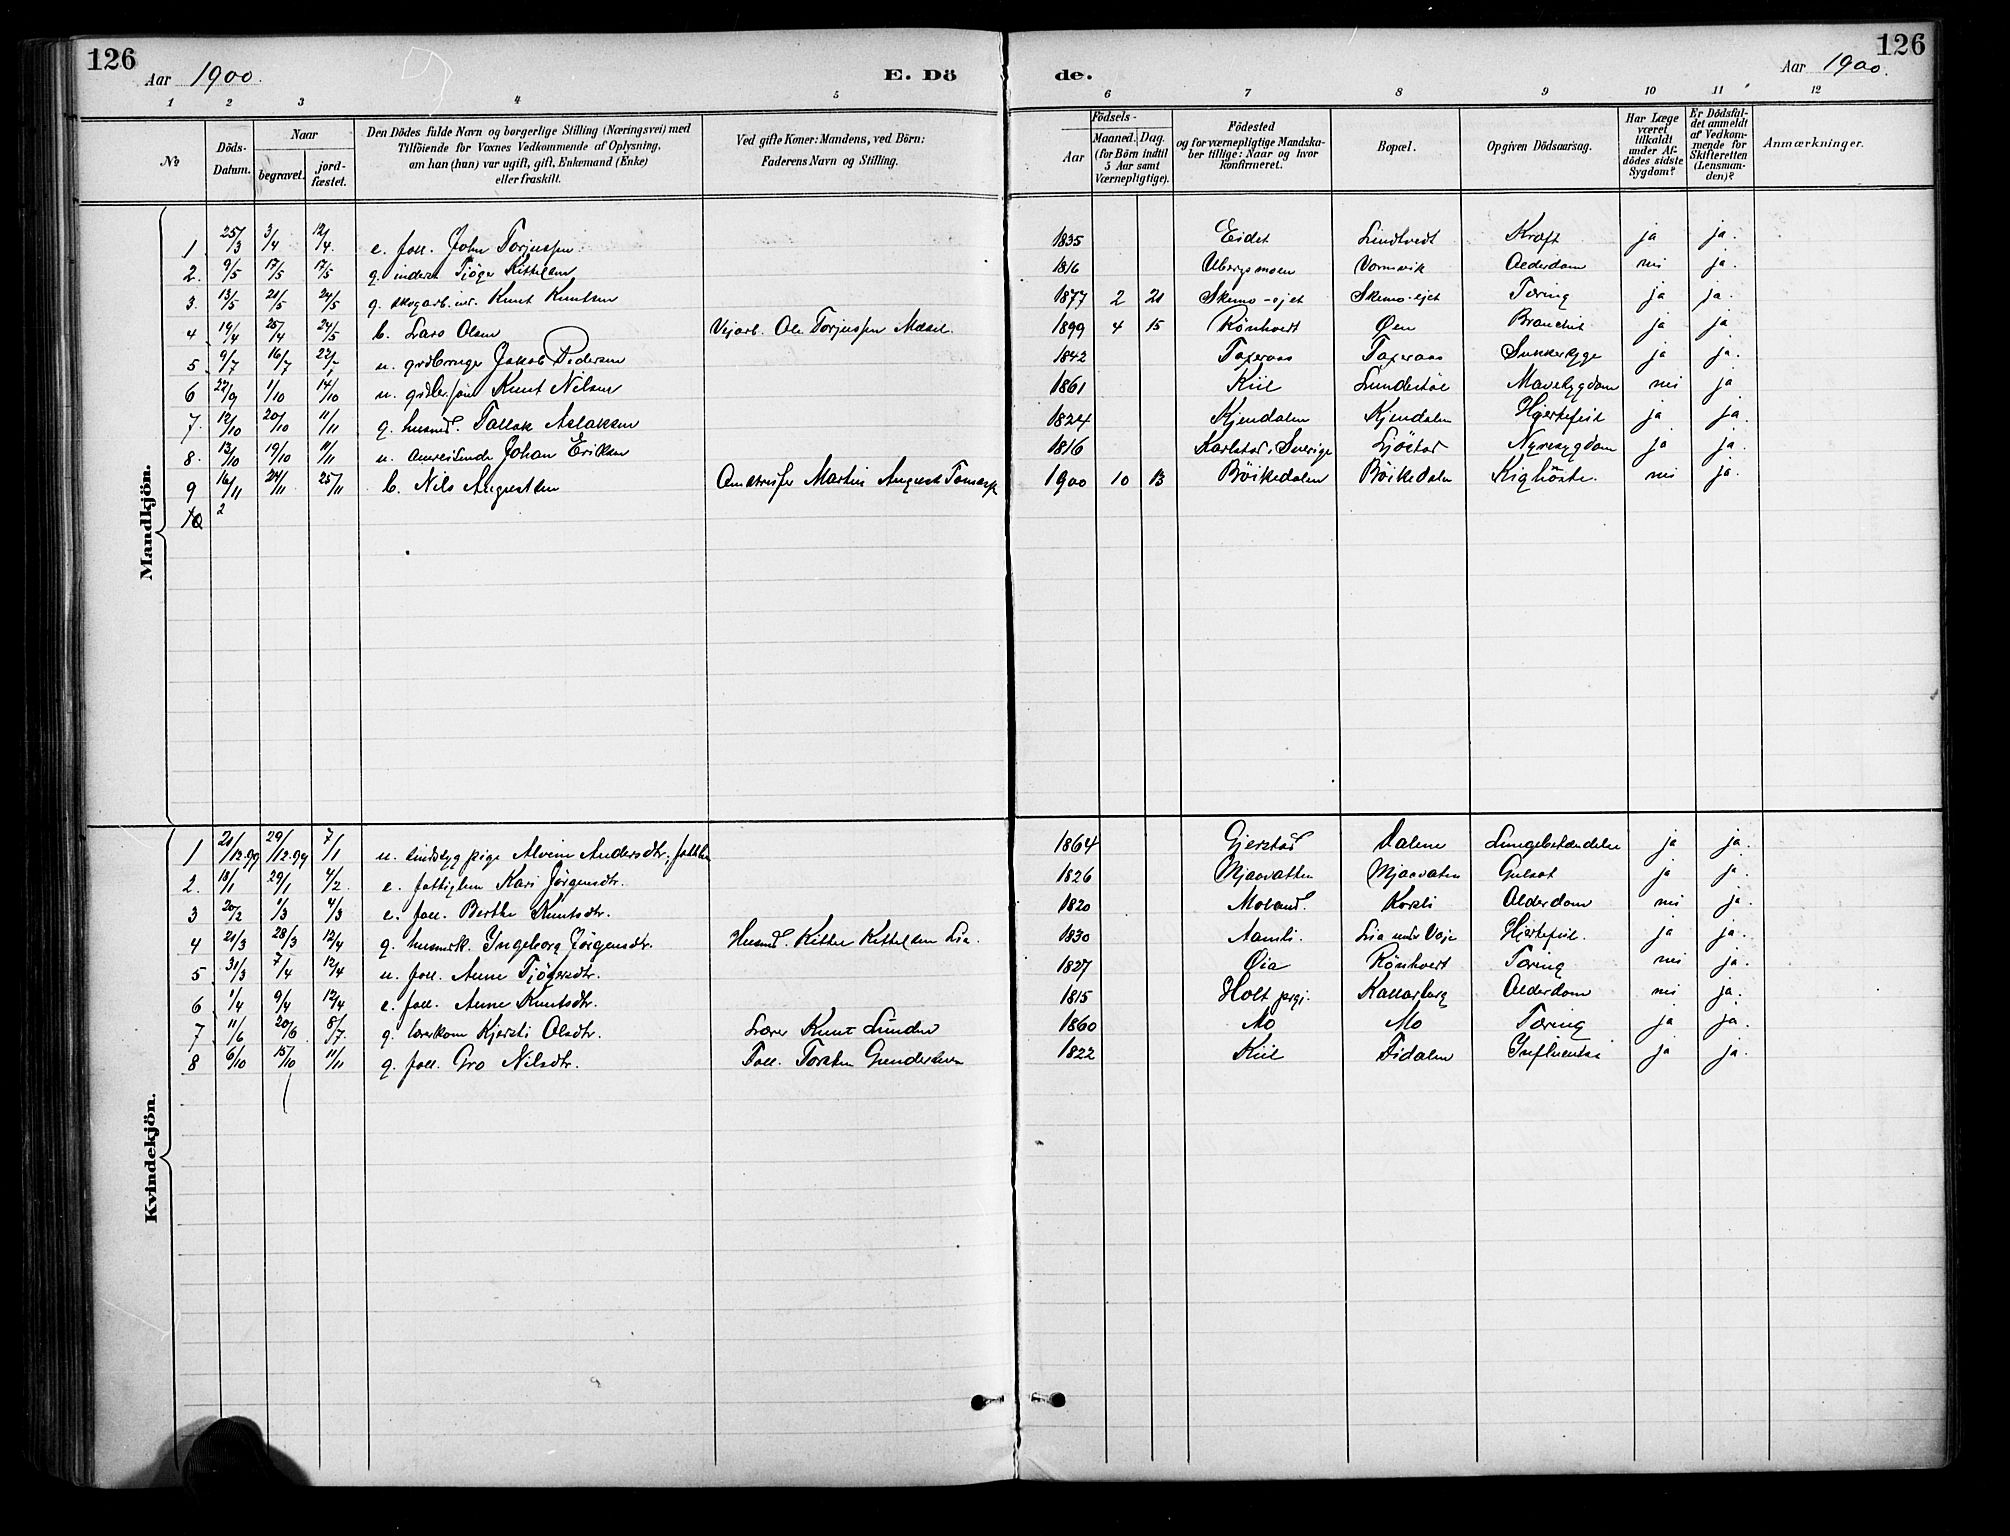 126
Aar 1900.
E. Dö
de.
Aar 1900.
126
1 2 3 4 5 6 7 8 9 10 11 12
No
Döds-Datum.
Naar
begravet.
jord-fæstet.
Den Dödes fulde Navn og borgerlige Stilling (Næringsvei) med
Tilföiende for Voxnes Vedkommende af Oplysning,
om han (hun) var ugift, gift, Enkemand (Enke)
eller fraskilt.
Ved gifte Koner: Mandens, ved Börn:
Faderens Navn og Stilling.
Födsels-
Aar
Maaned. Dag.
(for Börn indtil
5 Aar samt
Værnepligtige).
Födested
og for værnepligtige Mandska-
ber tillige: Naar og hvor
konfirmeret.
Bopæl.
Opgiven Dödsaarsag.
Har Læge
været
tilkaldt
under Af-
dödes sidste
Sygdom?
Er Dödsfal-
det anmeldt
af Vedkom-
mende for
Skifteretten
(Lensman-
den)?
Anmærkninger.
Mandkjön.
1. 25/3 3/4 12/4. e. foll. John Torjussen 1835 Eidet Lindtvedt Kræft ja ja.
2. 9/5 17/5 17/5 g. inderst Tjöger Kittelsen 1816 Ubergsmoen Vormvik Alderdom nei ja.
3. 13/5 21/5 24/5 g. skogarb. Knut Knutsen 1877 2 21 Skemo-ejet Skemo-ejet Tæring ja ja.
4 19/4 25/4 24/5 b. Lars Olsen Vejarb. Ole Torjussen 1899 4 15 Rönhvedt Öen Bronchit ja ja
5 9/7 16/7 22/7 u. grdbruger Jakob Pedersen 1842 Taxeraas Taxeraas Sukkersyge ja ja.
6 22/9 1/10 14/10 u. Knut Nilsen 1861 Kiil Mavesygdom nei ja
7. 12/10 20/10 11/11 g. husmd. Tallak Aslaksen 1824 Kjendalen Kjendalen Hjertefeil ja ja.
8. 13/10 19/10 11/11 u. omreisende Johan Eriksen 1816 Karlstad, Sverige Ljöstad Nyresygdom ja ja.
9 16/11 24/11 25/11 b. Nils Augustsen Martin August 1900 10 13 Böikedalen Böikedalen Kighoste. nei ja.
10 2
Kvindekjön.
1 21/12.99 29/12.99 7/1 u. sindssyg pige Alvine Andersdtr., 1864 Gjerstad Dalene Lungebetændelse ja ja.
2. 18/1 29/1 4/2 e. fattiglem Kari Jörgensdtr. 1826 Mjaavatten Mjaavaten Gulsot ja ja.
3 20/2 1/3 4/3 e. foll. Berthe Knutsdtr. 1820 Moland. Alderdom nei ja.
4 21/3 28/3 12/4 g. husmk. Ingeborg Jörgensdtr. Husmd. Kittel Kittelsen Lia. 1830 Aamli. Lia under Hjertefeil. ja ja.
5 31/3 7/4 12/4 u. foll. Anne Tjögersdtr. 1827 Öia Rönhvedt Tæring nei ja.
6 1/4 9/4 12/4 e. foll. Anne Knutsdtr. 1815 Holt prgj. Kallarberg Alderdom nei ja.
7 11/6 20/6 8/7. g. lærerkone Kjersti Olsdtr. Lærer Knut Lunden 1860 Mo Mo Tæring ja ja.
8 6/10 15/10 11/11 g. foll. Gro Nilsdtr. Foll. Torsten Gundersen 1822 Kiil Fidalen Influentsi ja ja.